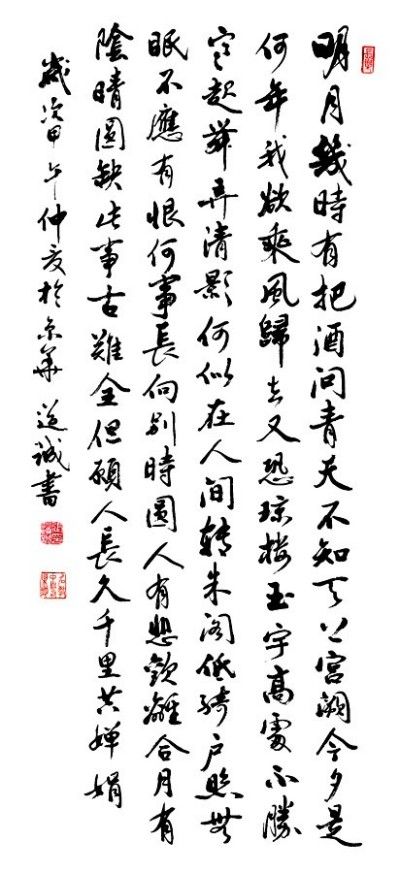 明月幾時有把酒問青天不知天上宮闕今夕是
何年我欲乘風歸去又恐琼樓玉宇高處不勝
寒起舞弄清影何似在人間轉朱閣低綺戶照無
眠不應有恨何事長向別時圓人有悲歡離合月有
陰晴圓缺此事古難全但願人長久千里共嬋娟
歲次甲午仲夏於京華誠書